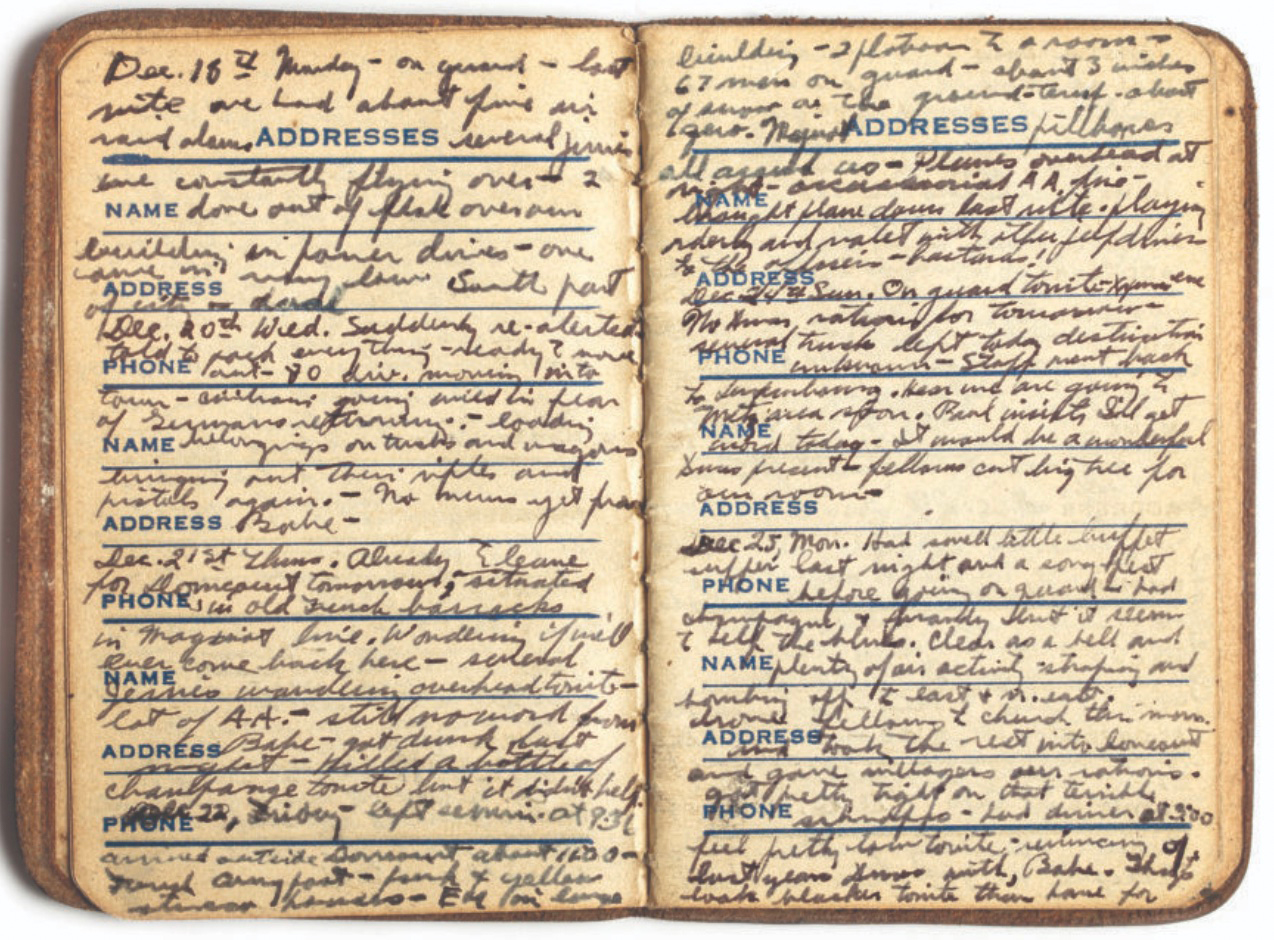 Dec. 18th Monday - on guard - last
nite we had about five air
raid alarms ADDRESSES several jerries
are constantly flying over - 2
NAME dove out of flak over our
building in power dives - one
came in very low South part
ADDRESS
of city - dead
Dec. 20th Wed. Suddenly re-alerted
told to pack everything - ready to move
PHONE out - 80 div. moving into
town - civilians going wild in fear
of Germans returning. - loading
NAME belongings on trucks and wagons
bringing out their rifles and
pistols again. - No news yet from
ADDRESS Babe -
Dec. 21st Thurs. Already to leave
for tomorrow, - situated
PHONE in old French barracks
in Maginot line. Wondering if we'll
ever come back here - several
NAME
Jerries wandering overhead tonite -
lot of A.A. - still no word from
ADDRESS Babe - got drunk last
night - Killed a bottle of
champange tonite but it didn't help.
PHONE 22, Friday - left at 93
arrived outside about 1600 -
French army post - pink & yellow
stucco houses - in large
building - 2 platoons to a room -
67 men on guard - about 3 inches
of snow on the ground - temp. about
zero. Maginot ADDRESSES pillboxes
all around us - Planes overhead at
night - occasional A.A. fire -
NAME
brought plane down last nite. playing
orderly and valet with other jeep drivers
to the officers - bastards!
ADDRESS
Dec. 24th Sun. On guard tonite - Xmas eve
No Xmas rations for tomorrow -
several trucks left today destination
PHONE unknown - Staff went back
to Luxembourg. Hear we are going to
Metz area soon. Paul insists I'll get
NAME word today - It would be a wonderful
Xmas present - fellows cut big tree for
our room -
ADDRESS
Dec. 25, Mon. Had swell little buffet
supper last night and a song fest
PHONE before going on guard - had
champagne & brandy but it seems
to the blues. Clear as a bell and
NAME plenty of air activity - strafing and
bombing off to east & n. east.
drove fellows to church this morn.
ADDRESS and took the rest into
and gave villagers our rations.
got pretty tight on that terrible
PHONE schnapps - had dinner at 200
feel pretty low tonite - reminiscing of
last years Xmas with Babe. Things
look blacker tonite than have for